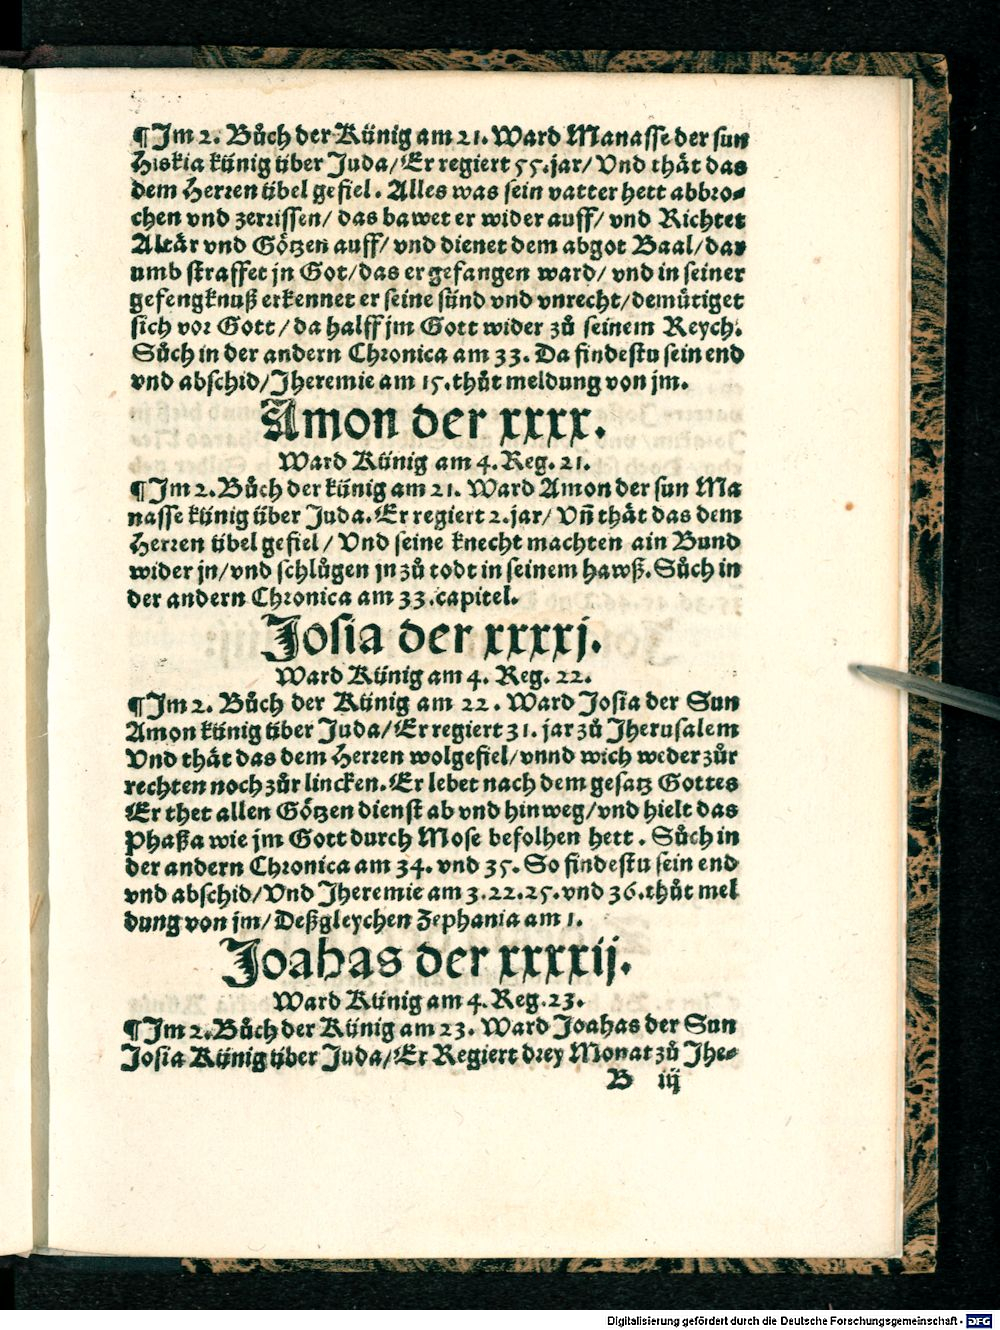 ¶Jm 2. Bůch der Künig am 21. Ward Manasse der sun
Hiskia künig über Juda/Er regiert 55.jar/ Vnd thåt das
dem Herren übel gefiel. Alles was sein vatter hett abbro⸗
chen vnd zerrissen/ das bawet er wider auff/ vnd Richtet
Altår vnd Götzen auff/ vnd dienet dem abgot Baal/dar
umb straffet jn Got/das er gefangen ward/ vnd in seiner
gefengknuß erkennet er seine sünd vnd vnrecht/demůtiget
sich vor Gott/da halff jm Gott wider zů seinem Reych.
Sůch in der andern Chronica am 33. Da findestu sein end
vnd abschid/Jheremie am 15.thůt meldung von jm.
Amon der xxxx.
Ward Künig am 4. Reg. 21.
¶Jm 2. Bůch der künig am 21. Ward Amon der sun Ma
nasse künig über Juda.Er regiert 2.jar/ Vn̄ thåt das dem
Herren übel gefiel/ Vnd seine knecht machten ain Bund
wider jn/vnd schlůgen jn zů todt in seinem hawß.Sůch in
der andern Chronica am 33.capitel.
Josia der xxxxj.
Ward Künig am 4. Reg. 22.
¶Jm 2. Bůch der Künig am 22. Ward Josia der Sun
Amon künig über Juda/Er regiert 31. jar zů Jherusalem
Vnd thåt das dem Herren wolgefiel/vnnd wich weder zůr
rechten noch zůr lincken. Er lebet nach dem gesatz Gottes
Er thet allen Götzen dienst ab vnd hinweg/vnd hielt das
Phaßa wie jm Gott durch Mose befolhen hett. Sůch in
der andern Chronica am 34. vnd 35. So findestu sein end
vnd abschid/Vnd Jheremie am 3.22.25.vnd 36.thůt mel
dung von jm/ Deßgleychen Zephania am 1.
Joahas der xxxxij.
Ward Künig am 4. Reg.23.
¶Jm 2. Bůch der Künig am 23. Ward Joahas der Sun
Josia Künig über Juda/Er Regiert drey Monat zů Jhe⸗
B iij
Digitalisierung gefördert durch die Deutsche Forschungsgemeinschaft - DFG